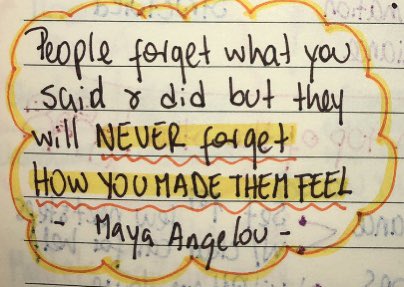 People forget what you
said & did but they
will NEVER forget
HOW YOU MADE THEM FEEL
- Maya Angelou -